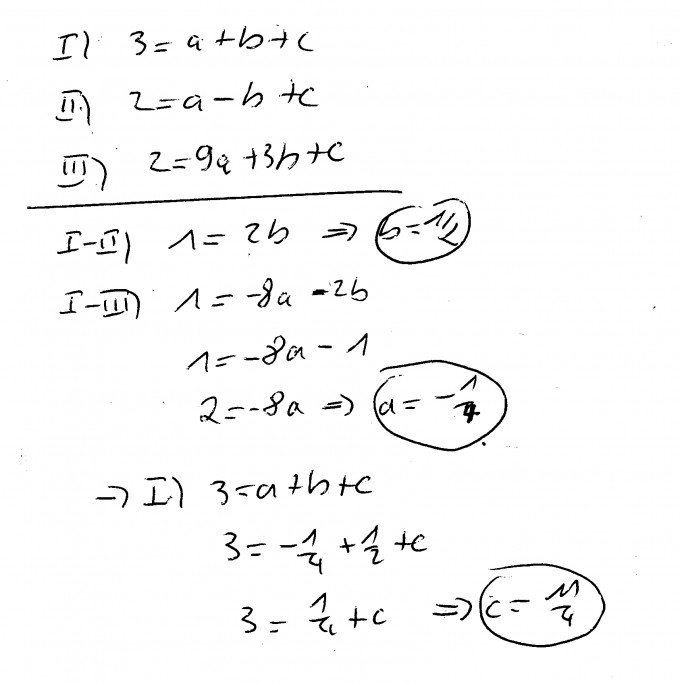 I) 3 = a + b + c
II) 2 = a − b + c
III) 2 = 9a + 3b + c
I-II) 1 = 2b ⇒ b = 1/2
I-III) 1 = -8a - 2b
1 = -8a - 1
2 = -8a ⇒ a = -1/4
→ I) 3 = a + b + c
3 = -1/4 + 1/2 + c
3 = 1/4 + c ⇒ c = 11/4